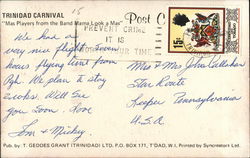 TRINIDAD CARNIVAL
"Mas Players from the Band Mama Look a Mas"
Post C
15
PREVENT CRIME
IT IS
YOUR TIME
15¢
We had a
very nice flight. Seven
hours flying time from
Pgh. We plan to stay
2 weeks. Will See
you Soon. Love
Mickey
Mr & Mrs John Callahan
Star Route
Pennsylvania
U.S.A.
Pub. by T. GEDDES GRANT (TRINIDAD) LTD. P.O. BOX 171, T'DAD, W.I. Printed by